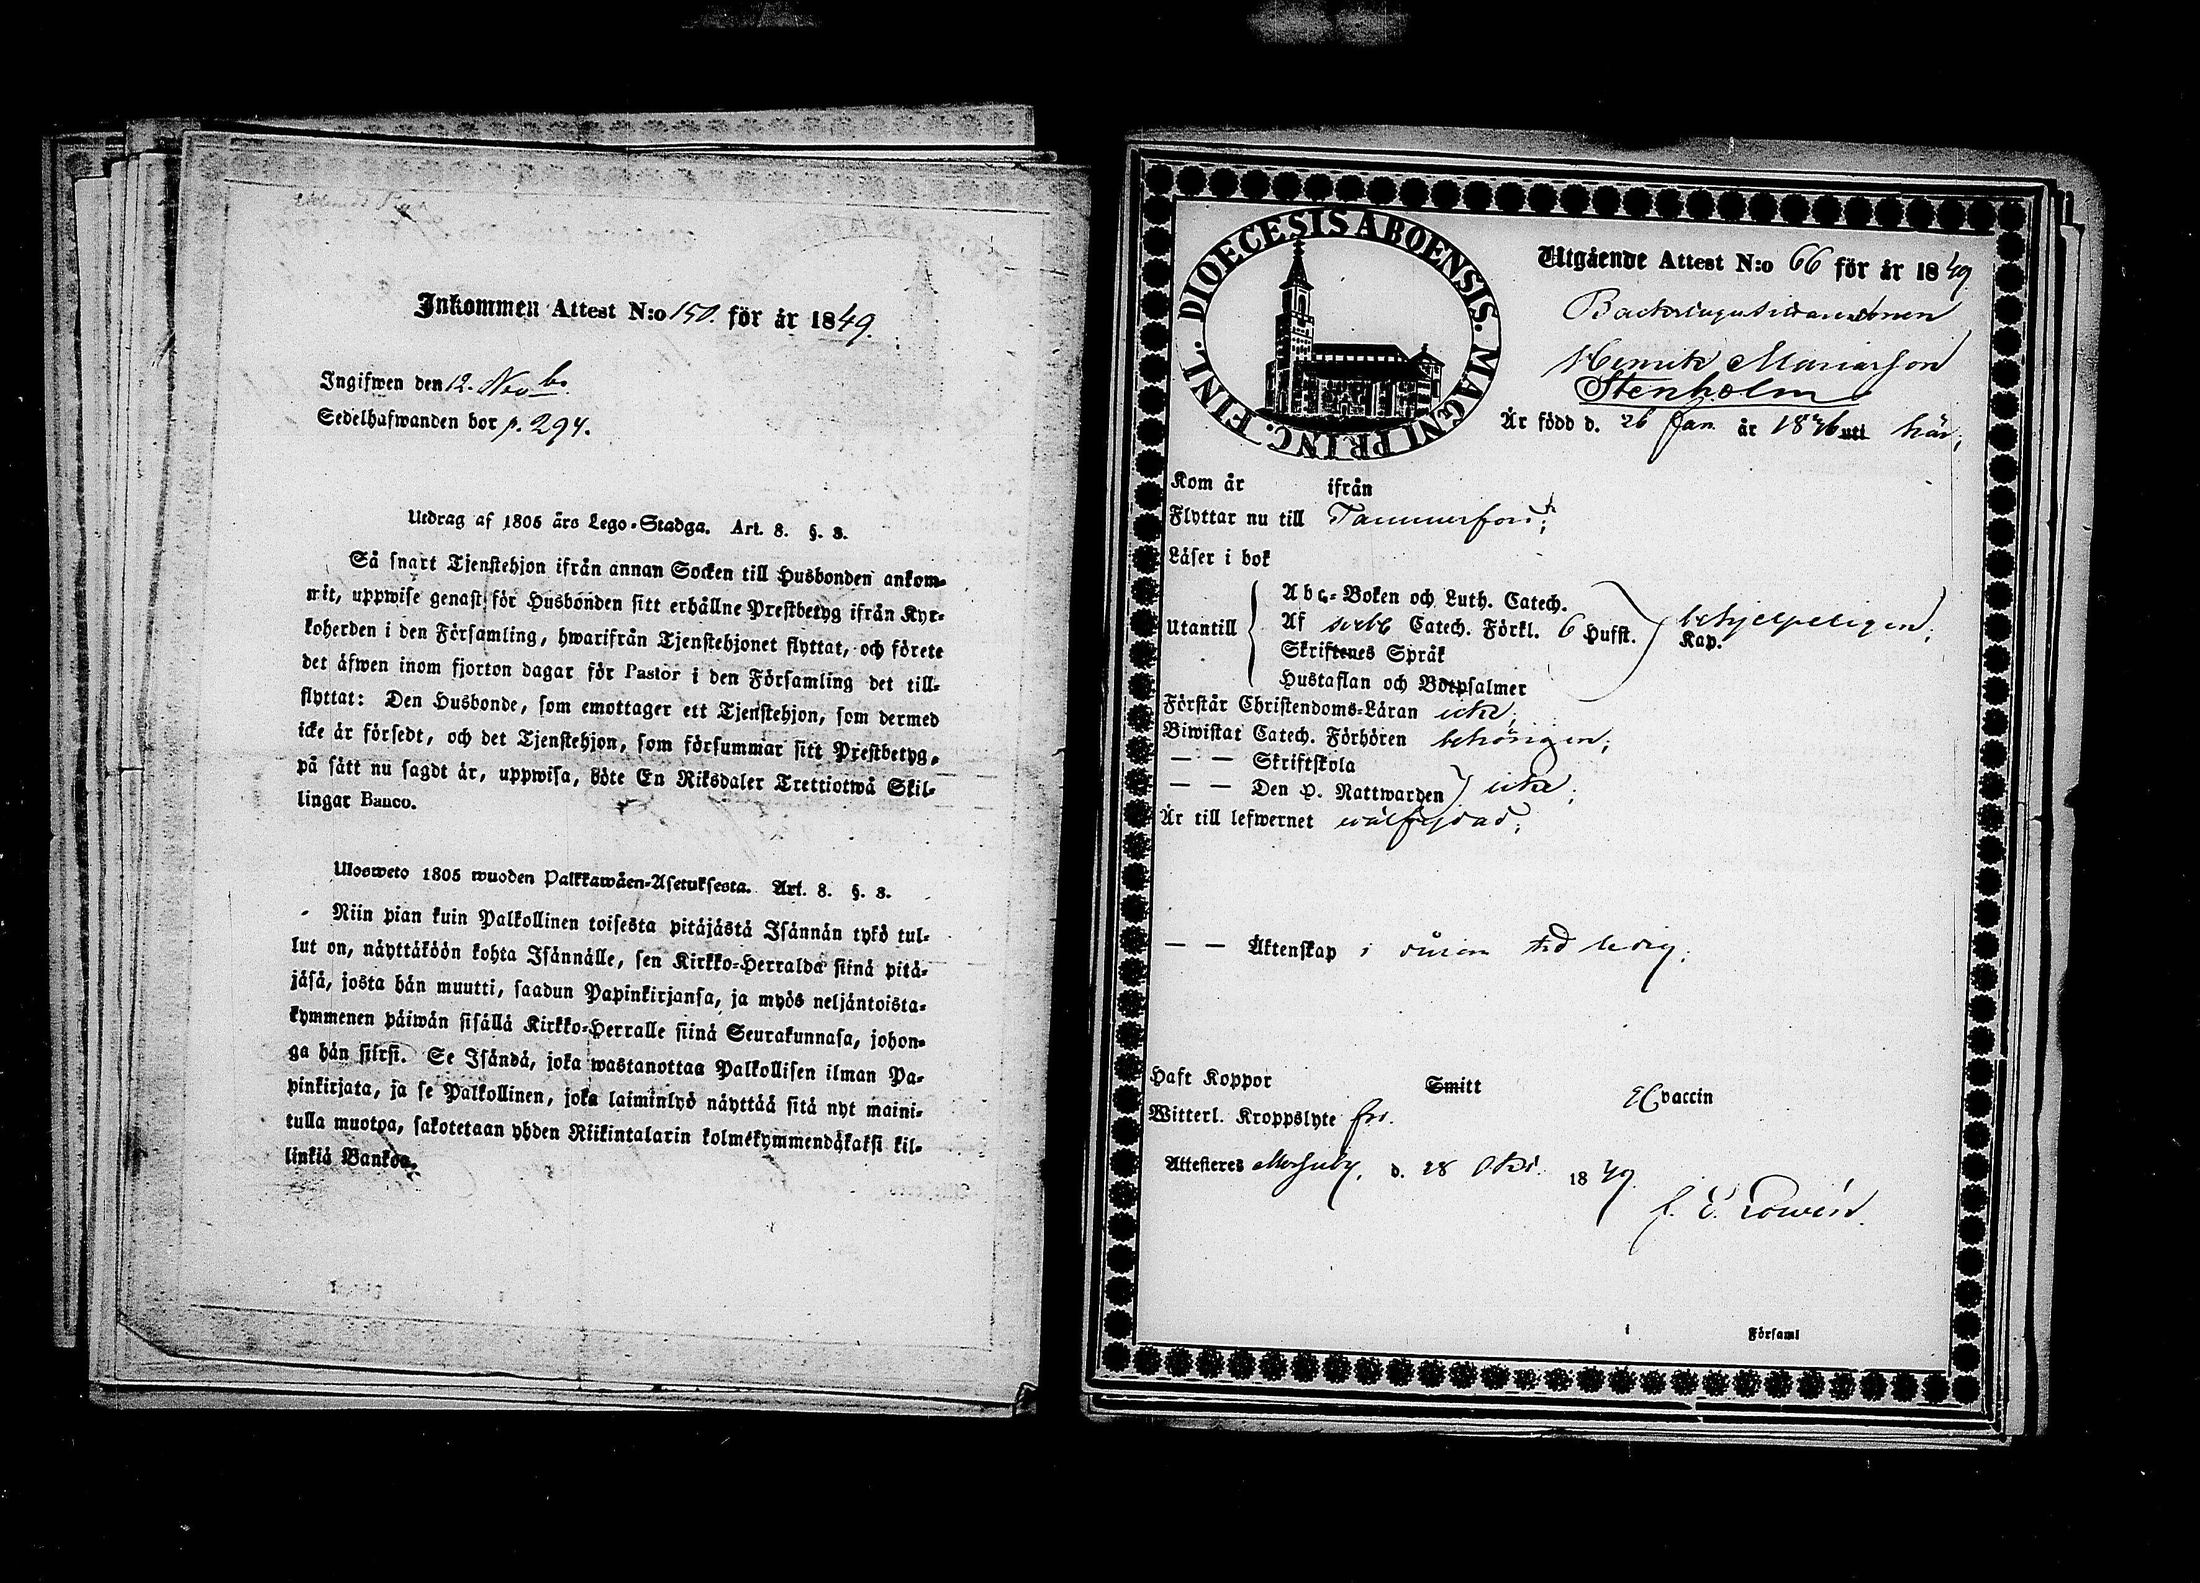 Inkommen Attest N:o 150. för år 1849.
Ingifwen den 12. Novbr.
Sedelhafwanden bor p. 294.
Utdrag af 1805 års Lego-Stadga. Art. 8. §. 3.
Så snart Tjenstehjon ifrån annan Socken till Husbonden ankom-
mit, uppwise genast för Husbonden sitt erhållne Prestbetyg ifrån Kyr-
koherden i den Församling, hwarifrån Tjenstehjonet flyttat, och förete
det äfwen inom fjorton dagar för Pastor i den Församling det till-
flyttat: Den Husbonde, som emottager ett Tjenstehjon, som dermed
icke är försedt, och det Tjenstehjon, som försummar sitt Prestbetyg,
på sätt nu sagdt är, uppwisa, böte En Riksdaler Trettiotwå Skil-
lingar Banco.
Ulosweto 1805 wuoden Palkkawäen-Asetuksesta. Art. 8. §. 3.
Niin pian kuin Palkollinen toisesta pitäjästä Isännän tykö tul-
lut on, näyttäköön kohta Isännälle, sen Kirkko-Herralda siinä pitä-
jäsä, josta hän muutti, saadun Papinkirjansa, ja myös neljäntoista-
kymmenen päiwän sisällä Kirkko-Herralle siinä Seurakunnasa, johon-
ga hän siirsi. Se Isändä, joka wastanottaa Palkollisen ilman Pa-
pinkirjata, ja se Palkollinen, joka laiminlyö näyttää sitä nyt maini-
tulla muotoa, sakotetaan yhden Riikintalarin kolmekymmendäkaksi kil-
linkiä Bankoa.
DIOECESIS ABOENSIS. MAGNI PRINC. FINL.
Utgående Attest N:o 66 för år 1849
Henrik Mariasson
Stenholm
Är född d. 26 Jan. år 1836 uti här;
Kom år ifrån
Flyttar nu till Tammerfors;
Läser i bok
Abc-Boken och Luth. Catech.
Utantill Af Catech. Förkl. 6 Hufst. behjelpeligen;
Kap.
Skriftenes Språk
Hustaflan och Botpsalmer
Förstår Christendoms-Läran icke;
Biwistat Catech. Förhören behörigen;
— — Skriftskola
— — Den H. Nattwarden icke;
Är till lefwernet wälfrejdad;
— — Äktenskap i tid ledig;
Haft Koppor Smitt vaccin
Witterl. Kroppslyte fri.
Attesteres d. 28 Okt. 1849.
i Församl